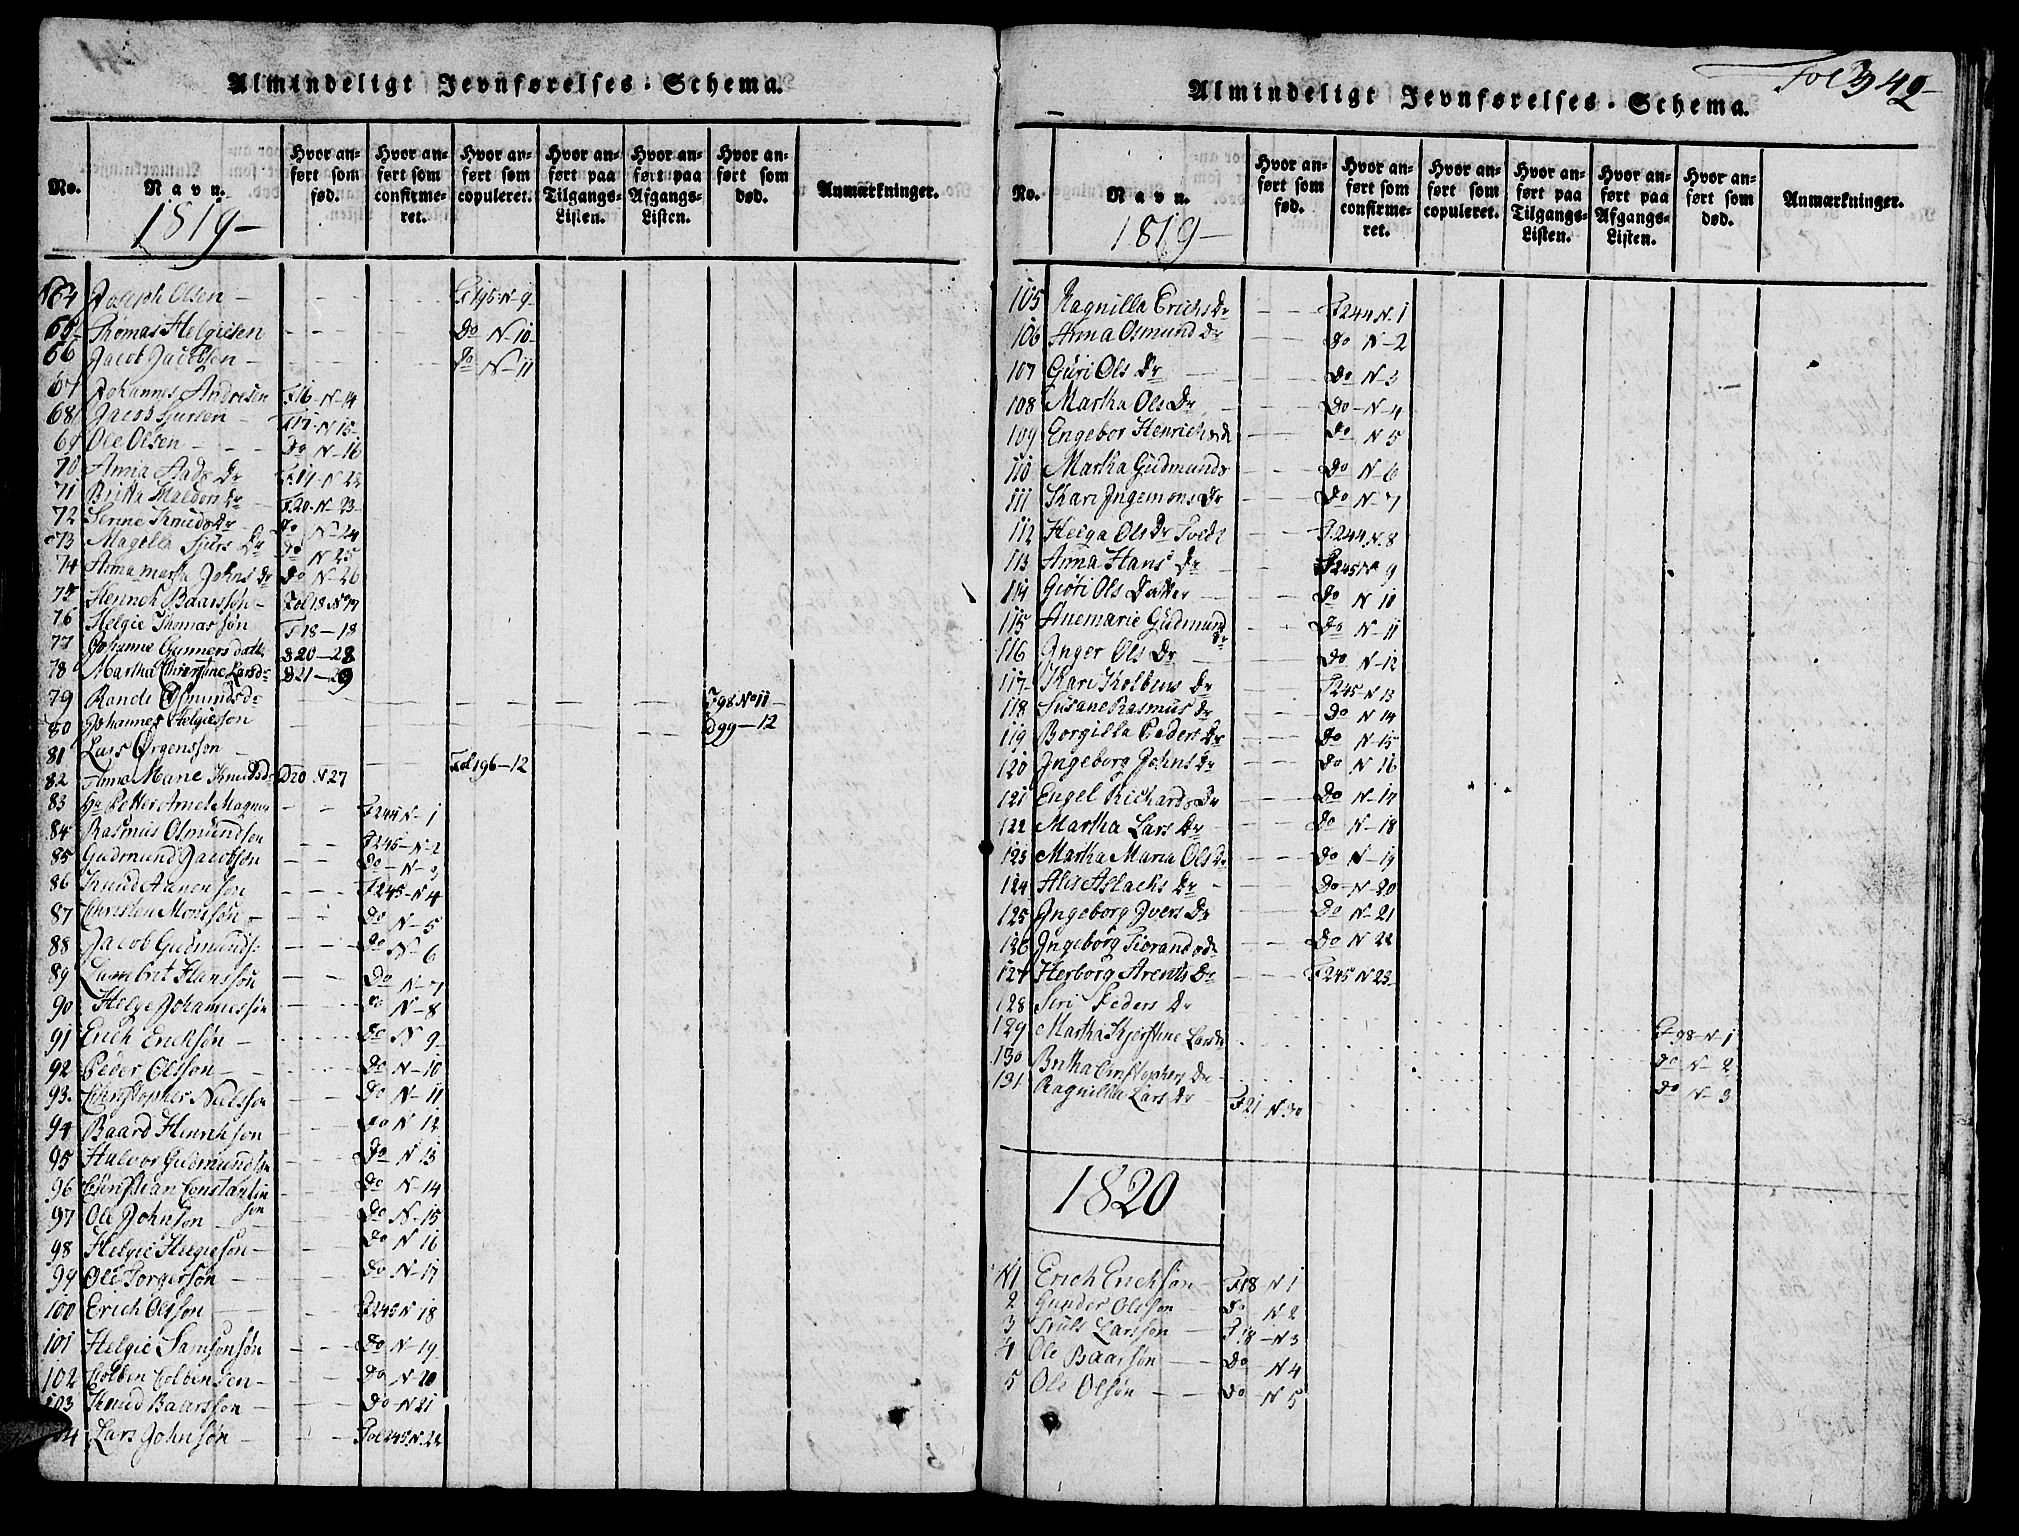 Almindeligt Jevnførelses-Schema.
No.
Navn.
1819-
Hvor anført som fød.
Hvor anført som confirmeret.
Hvor anført som copuleret.
Hvor anført paa Tilgangs-Listen.
Hvor anført paa Afgangs-Listen.
Hvor anført som død.
Anmærkninger.
N64 Joseph Olsen - F195-N-9-
65 Thomas Helgiesen Do N-10-
66 Jacob Jacobsen - Do N-11
67 Johannes Andresen F16-N-14
68 Jacob N-15-
69 Ole Olsen - Do N-16
70 Anna Aads Dr
71 Britta Dr F20-N-23-
72 Serine Knuds Dr Do N-24
73 Magella Sjurs Dr Do N-25
74 Anna martha Johns Dr Do N-26
75 Henrich Baarssøn - Fol 18 No 17
76 Helgie Thomassøn F18-18
77 Johanne Gunners datter F20-28
78 Martha Christine Larsdr F21-29
79 Rande Osmunds dr F98 No 11-
80 Johannes Helgiesson F99-12
81 Lars Ørgensson Fol 196-12
82 Anna Marie Knudsdr F20 N27
83 Hr Petter Arnet Magnus F244 N-1
84 Rasmus Osmundson F245-N-2
85 Gudmund Jacobsøn Do-N-3
86 Knud F245-N4
87 Christen Monssøn Do N-5
88 Jacob Gudmunds: Do N-6
89 Lambert Hanssøn Do N-7
90 Helge Johannessøn Do N-8
91 Erich Erichsøn - Do N 9-
92 Peder Olsson - Do N-10
93 Christopher Nielsson Do N-11
94 Baard Henrichson Do N 12
95 Halvor Gudmundsøn Do N 13
96 Christian Constantinsøn Do N-14
97 Ole Johnson Do N-15
98 Helgie Helgieson - Do N 16
99 Ole Torgersøn - Do N-17
100 Erich Olsson F245 N 18
101 Helgie Samsonsøn Do N-19
102 Colben Colbensen - Do N-20
103 Knud Baarsson - Do-N 21
104 Lars Johnson - Fol 245 N. 22
Fol 342-
Almindeligt Jevnførelses-Schema.
No.
Navn.
1819-
Hvor anført som fød.
Hvor anført som confirmeret.
Hvor anført som copuleret.
Hvor anført paa Tilgangs-Listen.
Hvor anført paa Afgangs-Listen.
Hvor anført som død.
Anmærkninger.
105 Ragnilla Erichs Dr F244 N. 1
106 Anna Osmund Dr Do N-2
107 Guri Ols Dr Do N-3
108 Martha Ols Dr Do-N-4
109 Engebor Henrichsdr Do N 5
110 Martha Gudmunds Do N-6
111 Kari Ingemons Dr Do N-7
112 Helga Ols Dr F244 N. 8
113 Anna Hans Dr F245 N 9
114 Giøri Ols Datter Do N 10
115 Anemarie Gudmund Dr Do N-11
116 Inger Ols Dr Do N-12
117- Kari Kolbens Dr F245 N 13
118 Susane Rasmus Dr Do N 14
119 Borgilla Peders Dr Do N-15
120 Ingeborg Johns Dr Do N 16
121 Engel Richards Dr Do N-17
122 Martha Lars Dr Do N-18
123 Martha Maria Ols Dr Do N-19
124 Alis Aslachs Dr - Do-N-20
125 Ingeborg Ivers Dr Do N-21
126 Ingeborg Do N 22
127 Herborg Arents Dr F245 N23
128 Siri Peders Dr
129 Martha Kjerstine Larsdr F98-N-1
130 Britha Christophers Dr Do N-2
131 Ragnilla Lars Dr F21 N.30 Do N-3
1820
N1 Erich Erichsøn F18-N 1
2 Gunder Olsson Do N 2
3 Truls Larssøn F18-N3
4 Ole Baarsøn Do N4
5 Ole Olsøn Do N 5